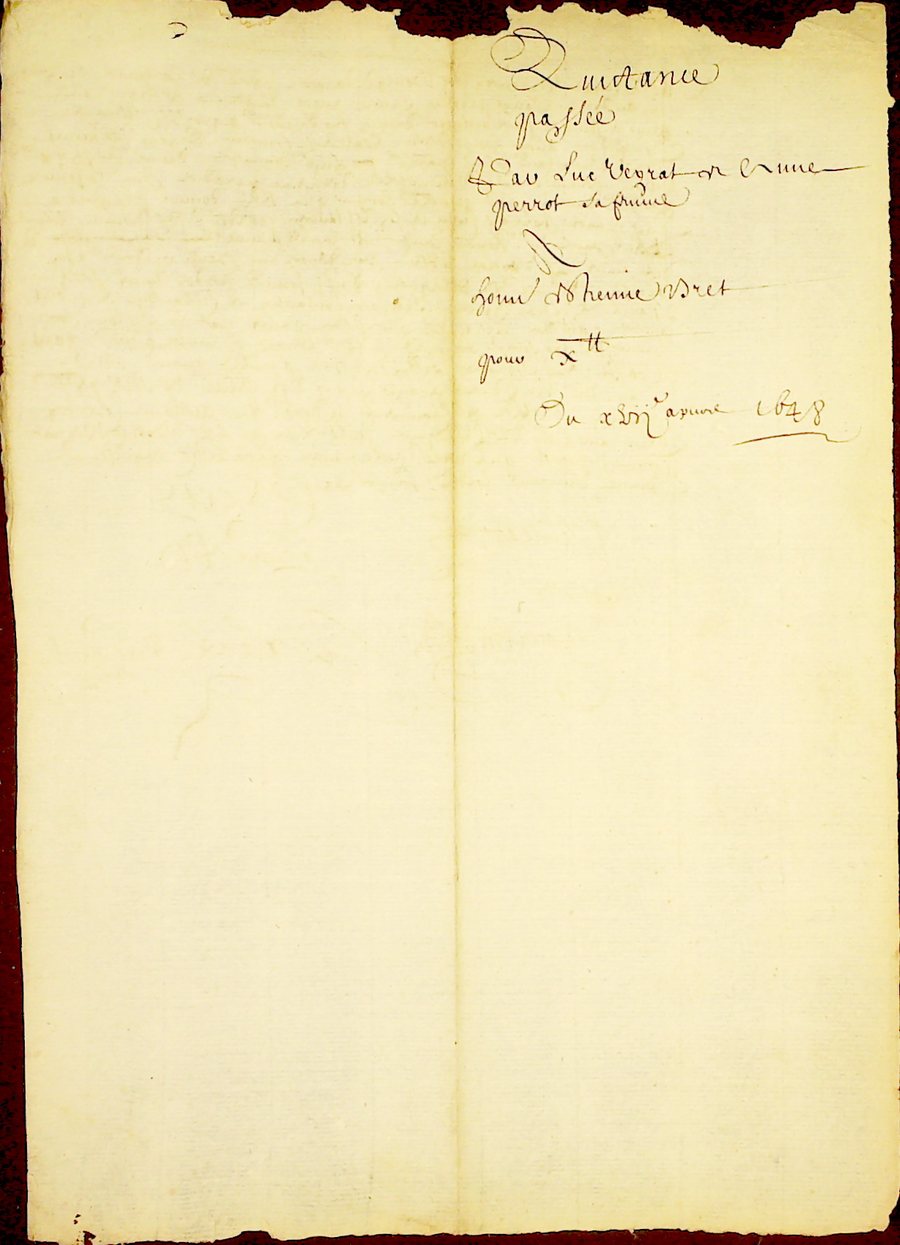 Quictance
passée
Par Luc Veyrat et Anne
perrot sa femme
A
honn Estienne Bret
pour X ₶
Du xvij apvril 1648